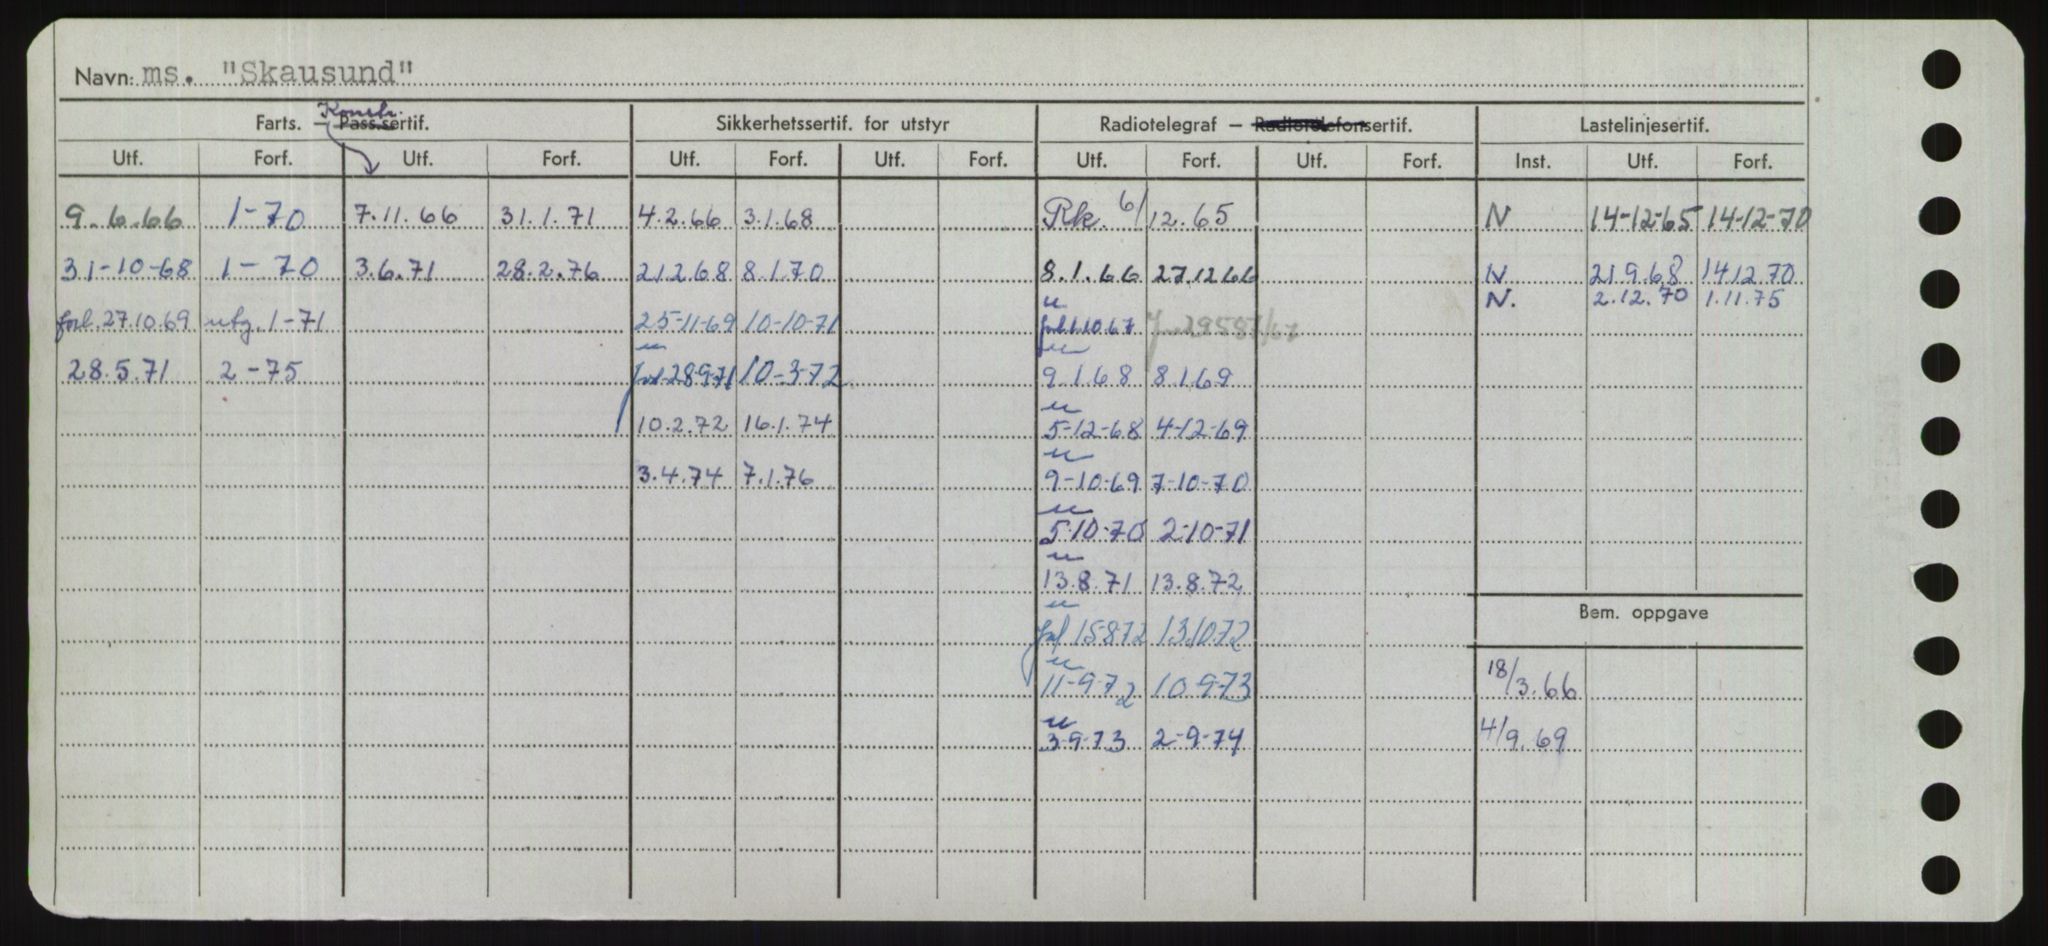 Navn: ms. "Skausund"
Konstr.
Farts. — Pass.sertif. Sikkerhetssertif. for utstyr Radiotelegraf — Radiotelefonsertif. Lastelinjesertif.
Utf. Forf. Utf. Forf. Utf. Forf. Utf. Forf. Utf. Forf. Utf. Forf. Inst. Utf. Forf.
9.6.66 1-70 7.11.66 31.1.71 4.2.66 3.1.68 Rk. 6/12.65 N 14-12-65 14-12-70
31-10-68 1-70 3.6.71 28.2.76 21.2.68 8.1.70 8.1.66 27.12.66 N 21.9.68 14.12.70
N. 2.12.70 1.11.75
forl. 27.10.69 utg. 1-71 25-11-69 10-10-71 u forl. 1.10.67 J. 29587/67
28.5.71 2-75 u forl. 28971 10-3-72 u 9.1.68 8.1.69
10.2.72 16.1.74 u 5-12-68 4-12-69
3.4.74 7.1.76 u 9-10-69 7-10-70
u 5-10-70 2-10-71
u 13.8.71 13.8.72
Bem. oppgave
u forl 15872 131072
u 11-9-72 10.9-73 18/3.66
u 3-9-73 2-9-74 4/9.69